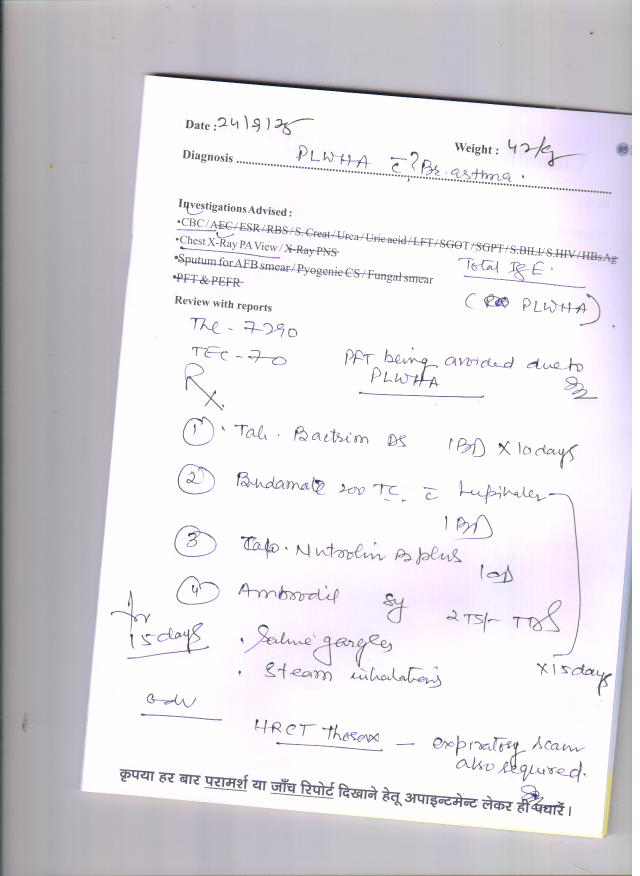 Date : 24/9/25
Weight : 42kg
05
Diagnosis PLWHA c̄ ? Br. asthma.
Investigations Advised :
•CBC / AEC / ESR / RBS / S. Creat / Urea / Uric acid / LFT / SGOT / SGPT / S.BILI / S.HIV / HBsAg
•Chest X-Ray PA View / X-Ray PNS
•Sputum for AFB smear / Pyogenic CS / Fungal smear
Total IgE.
•PFT & PEFR
(PLWHA)
Review with reports
TLC - 7290
TEC - 70
PFT being avoided due to
PLWHA
Rx
1 Tab. Bactrim DS 1 BD x 10 days
2 Budamate 200 TC c̄ Lupihaler
1 BD
3 Cap. Nutrolin B plus
1 OD
4 Ambrodil Sy 2 TS/- TDS
for
15 days
. Saline gargles
. Steam inhalations
x 15 days
HRCT Thorax — expiratory scan
also required.
कृपया हर बार परामर्श या जाँच रिपोर्ट दिखाने हेतू अपाइन्टमेन्ट लेकर ही पधारें।